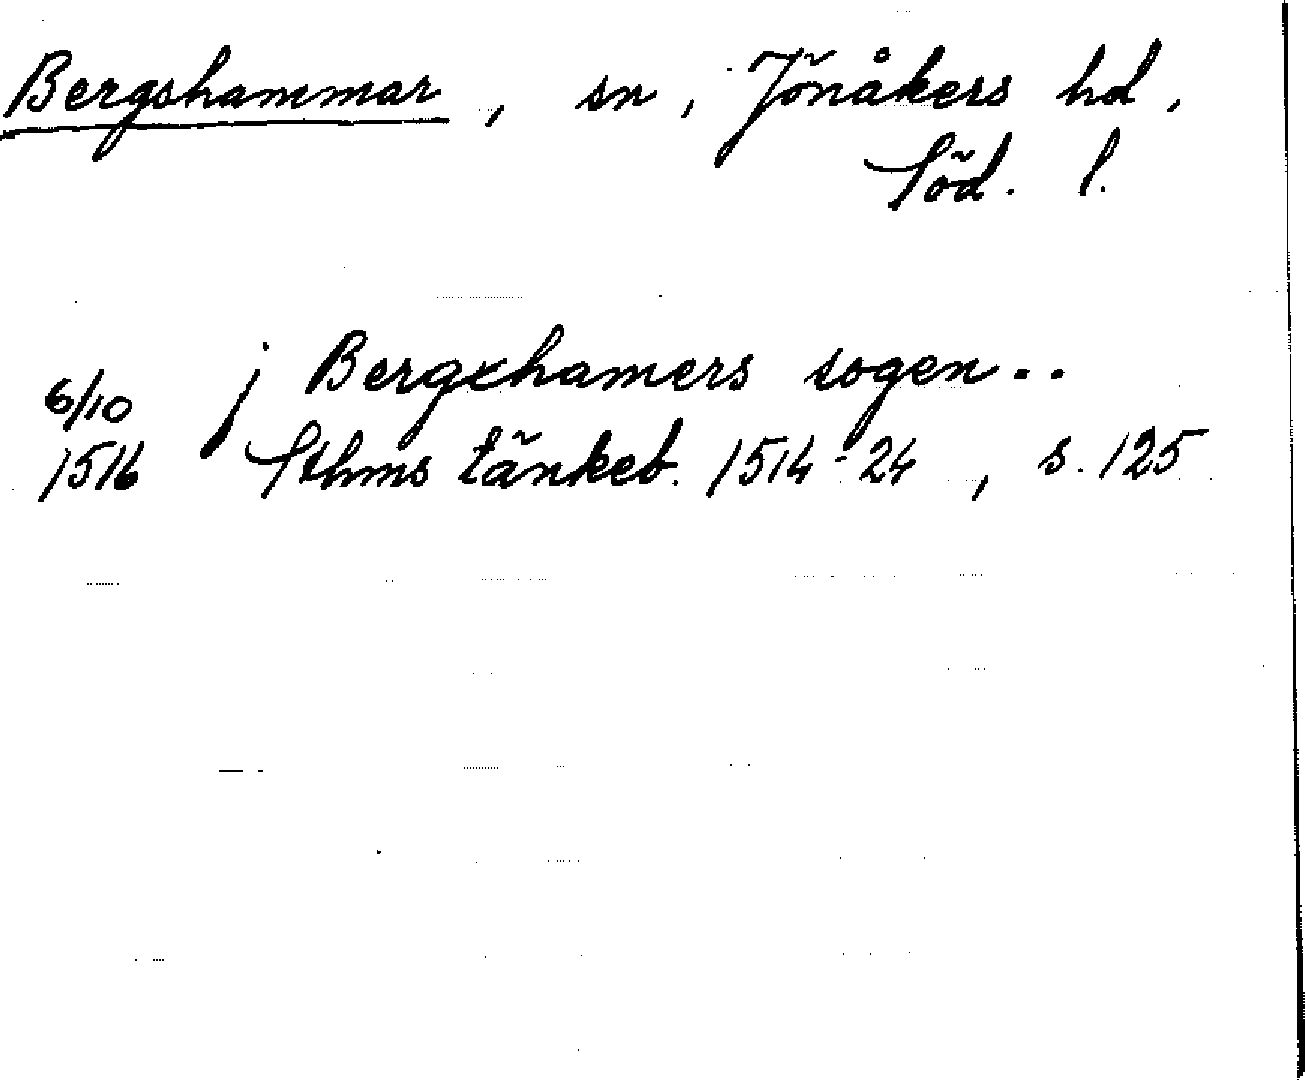 Bergshammar, sn, Jönåkers hd,
Söd. l.
6/10 j Bergxhamers sogen..
1516 Sthms tänkeb. 1514-24, s. 125